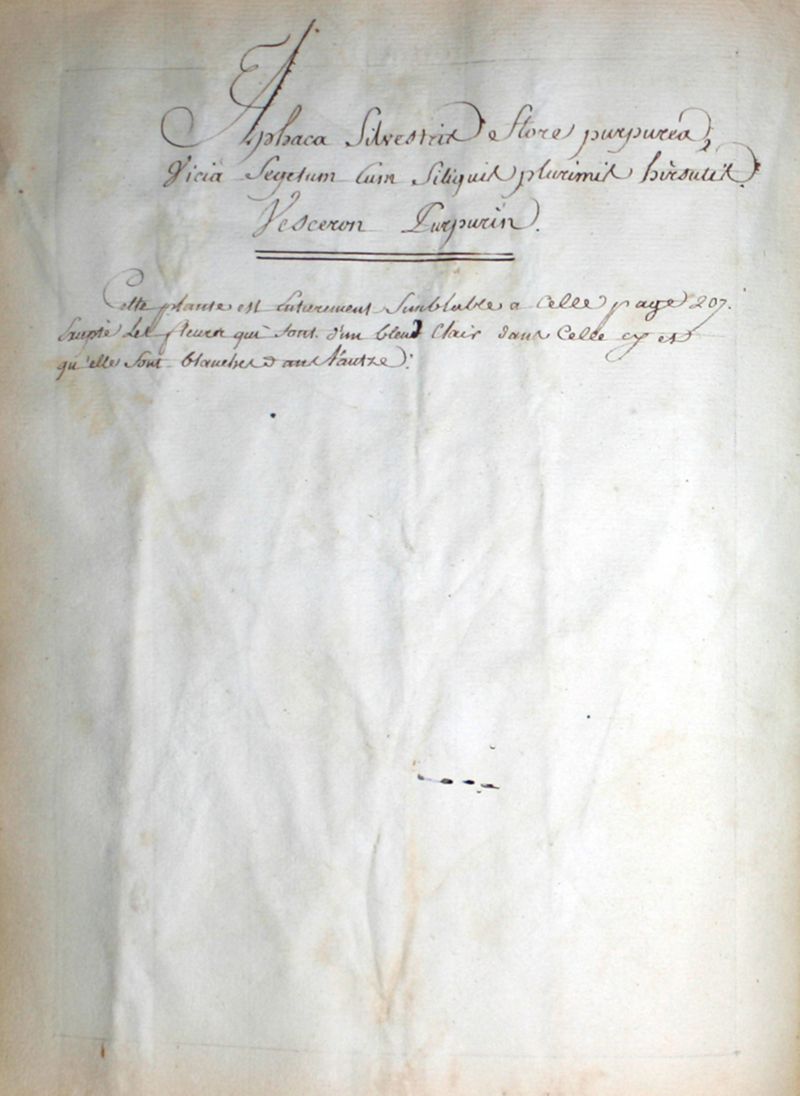 Aphaca Silvestris e flore purpurea,
Vicia Segetum Cum Siliquis plurimis hirsutis.
Vesceron Purpurin.
Cette plante est Entierement Semblable a Celle page 207.
Exepté Les fleurs qui sont d'un bleu Clair dans Celle cy et
qu'elle sont blanches dans l'autre.